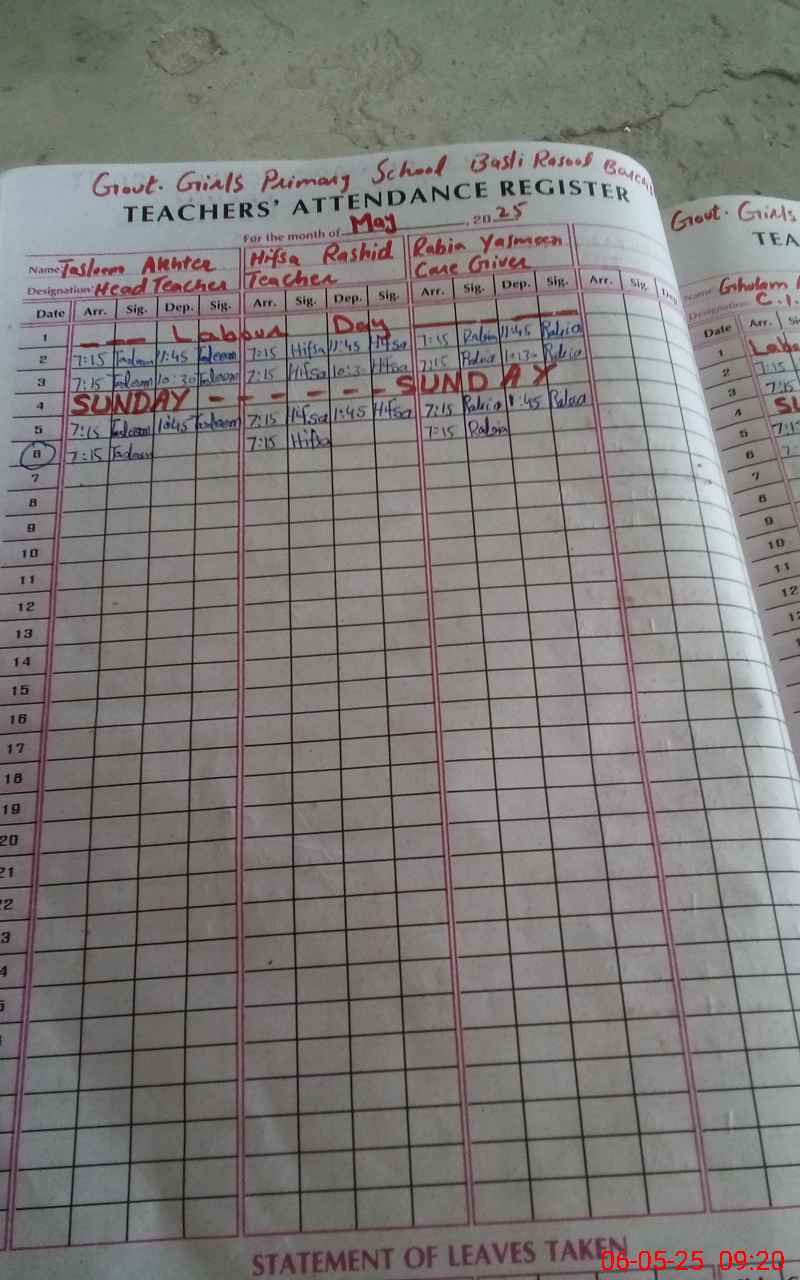 Govt. Girls Primary School Basti Rasool
TEACHERS' ATTENDANCE REGISTER
For the month of May, 2025
Name: Tasleem Akhter Hifsa Rashid Rabia Yasmeen
Designation: Head Teacher Teacher Care Giver
Date Arr. Sig. Dep. Sig. Arr. Sig. Dep. Sig. Arr. Sig. Dep. Sig. Arr. Sig.
1 Labour Day
2 7:15 Tasleem 11:45 Tasleem 7:15 Hifsa 11:45 Hifsa 7:15 Rabia 11:45 Rabia
3 7:15 Tasleem 10:30 Tasleem 7:15 Hifsa 10:30 Hifsa 7:15 Rabia 10:30 Rabia
4 SUNDAY - - - - - - SUNDAY
5 7:15 Tasleem Tasleem 7:15 Hifsa 1:45 Hifsa 7:15 Rabia 1:45 Rabia
6 7:15 Tasleem 7:15 Hifsa 7:15 Rabia
7
8
9
10
11
12
13
14
15
16
17
18
19
20
21
22
3
4
5
STATEMENT OF LEAVES TAKEN
Govt. Girls
TEA
Name: Ghulam
Designation: C.I.
Date Arr.
1 Labo
2 7:15
3 7:15
4 SU
5 7:1
6 7:
7
8
9
10
11
12
06-05-25 09:20